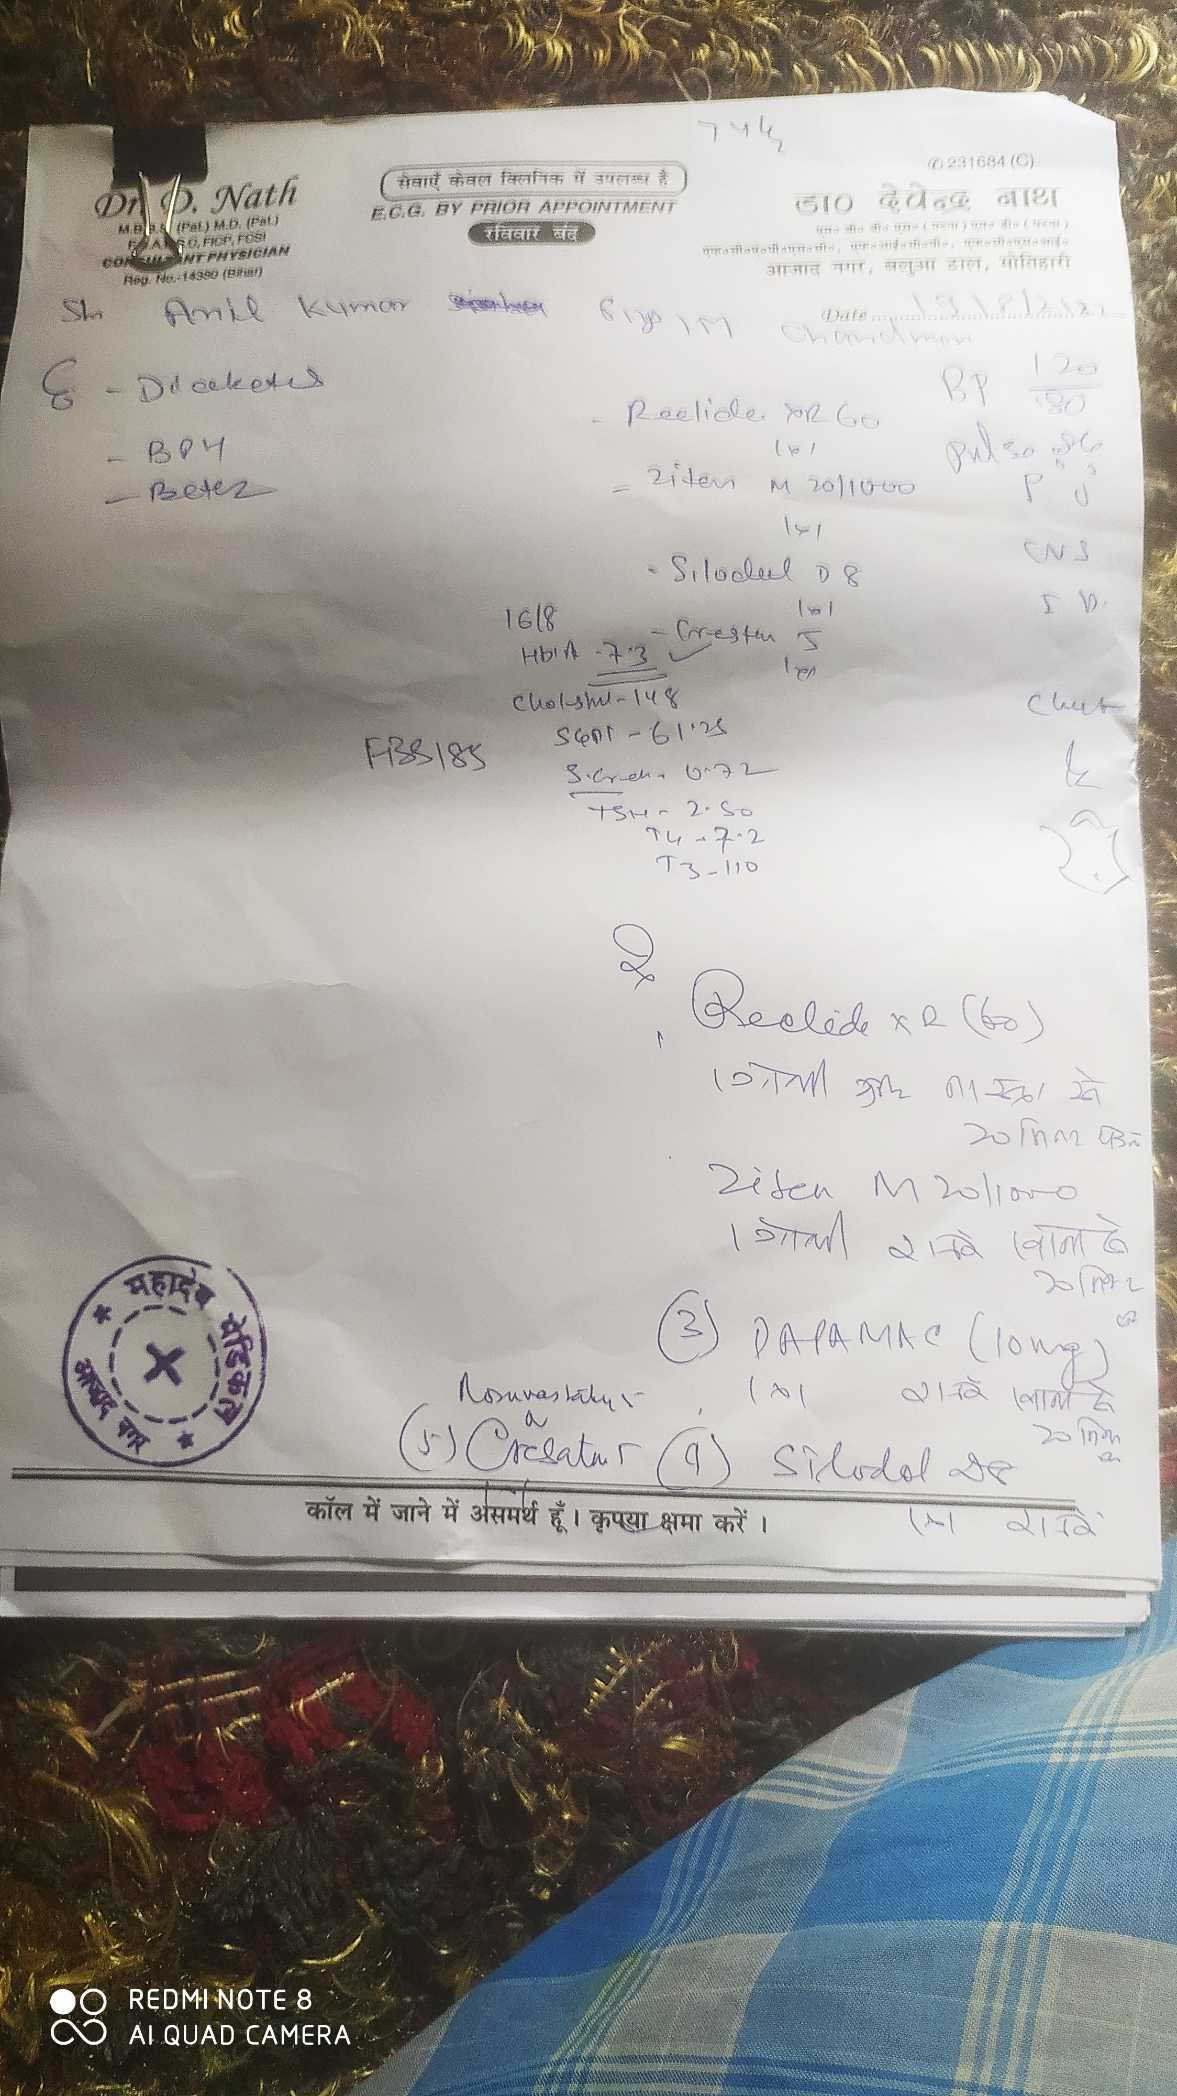 744
Dr. D. Nath
M.B.B.S. (Pat.) M.D. (Pat.)
FICP, FCSI
CONSULTANT PHYSICIAN
Reg. No.-14380 (Bihar)
सेवाएँ केवल क्लिनिक में उपलब्ध है
E.C.G. BY PRIOR APPOINTMENT
रविवार बंद
✆ 231684 (C)
डा० देवेन्द्र नाथ
आजाद नगर, बलुआ टाल, मोतिहारी
Date
Sh Anil Kumar
- Diabetes
- BPH
BP 120/80
Pulse 86
CNS
Chest
- Reclide XR 60
1x1
= Ziten M 20/1000
1x1
- Silodal D 8
1x1
5
16/8
HbIA - 7.3
Cholstrl - 148
SGPT - 61.25
FBS 185
S.Creat. 0.72
TSH - 2.50
T4 - 7.2
T3 - 110
Reclide XR (60)
1 गोली सुबह नास्ता से
20 मिनट पहले
Ziten M 20/1000
1 गोली रात में खाना से
20 मिनट
(3) DAPAMAC (10mg)
1x1 रात में खाना से
20 मिनट
Rosuvastatin
(5) (4) Silodal D8
1x1 रात में
महादेव मेडिकल
आजाद नगर
कॉल में जाने में असमर्थ हूँ। कृपया क्षमा करें ।
REDMI NOTE 8
AI QUAD CAMERA